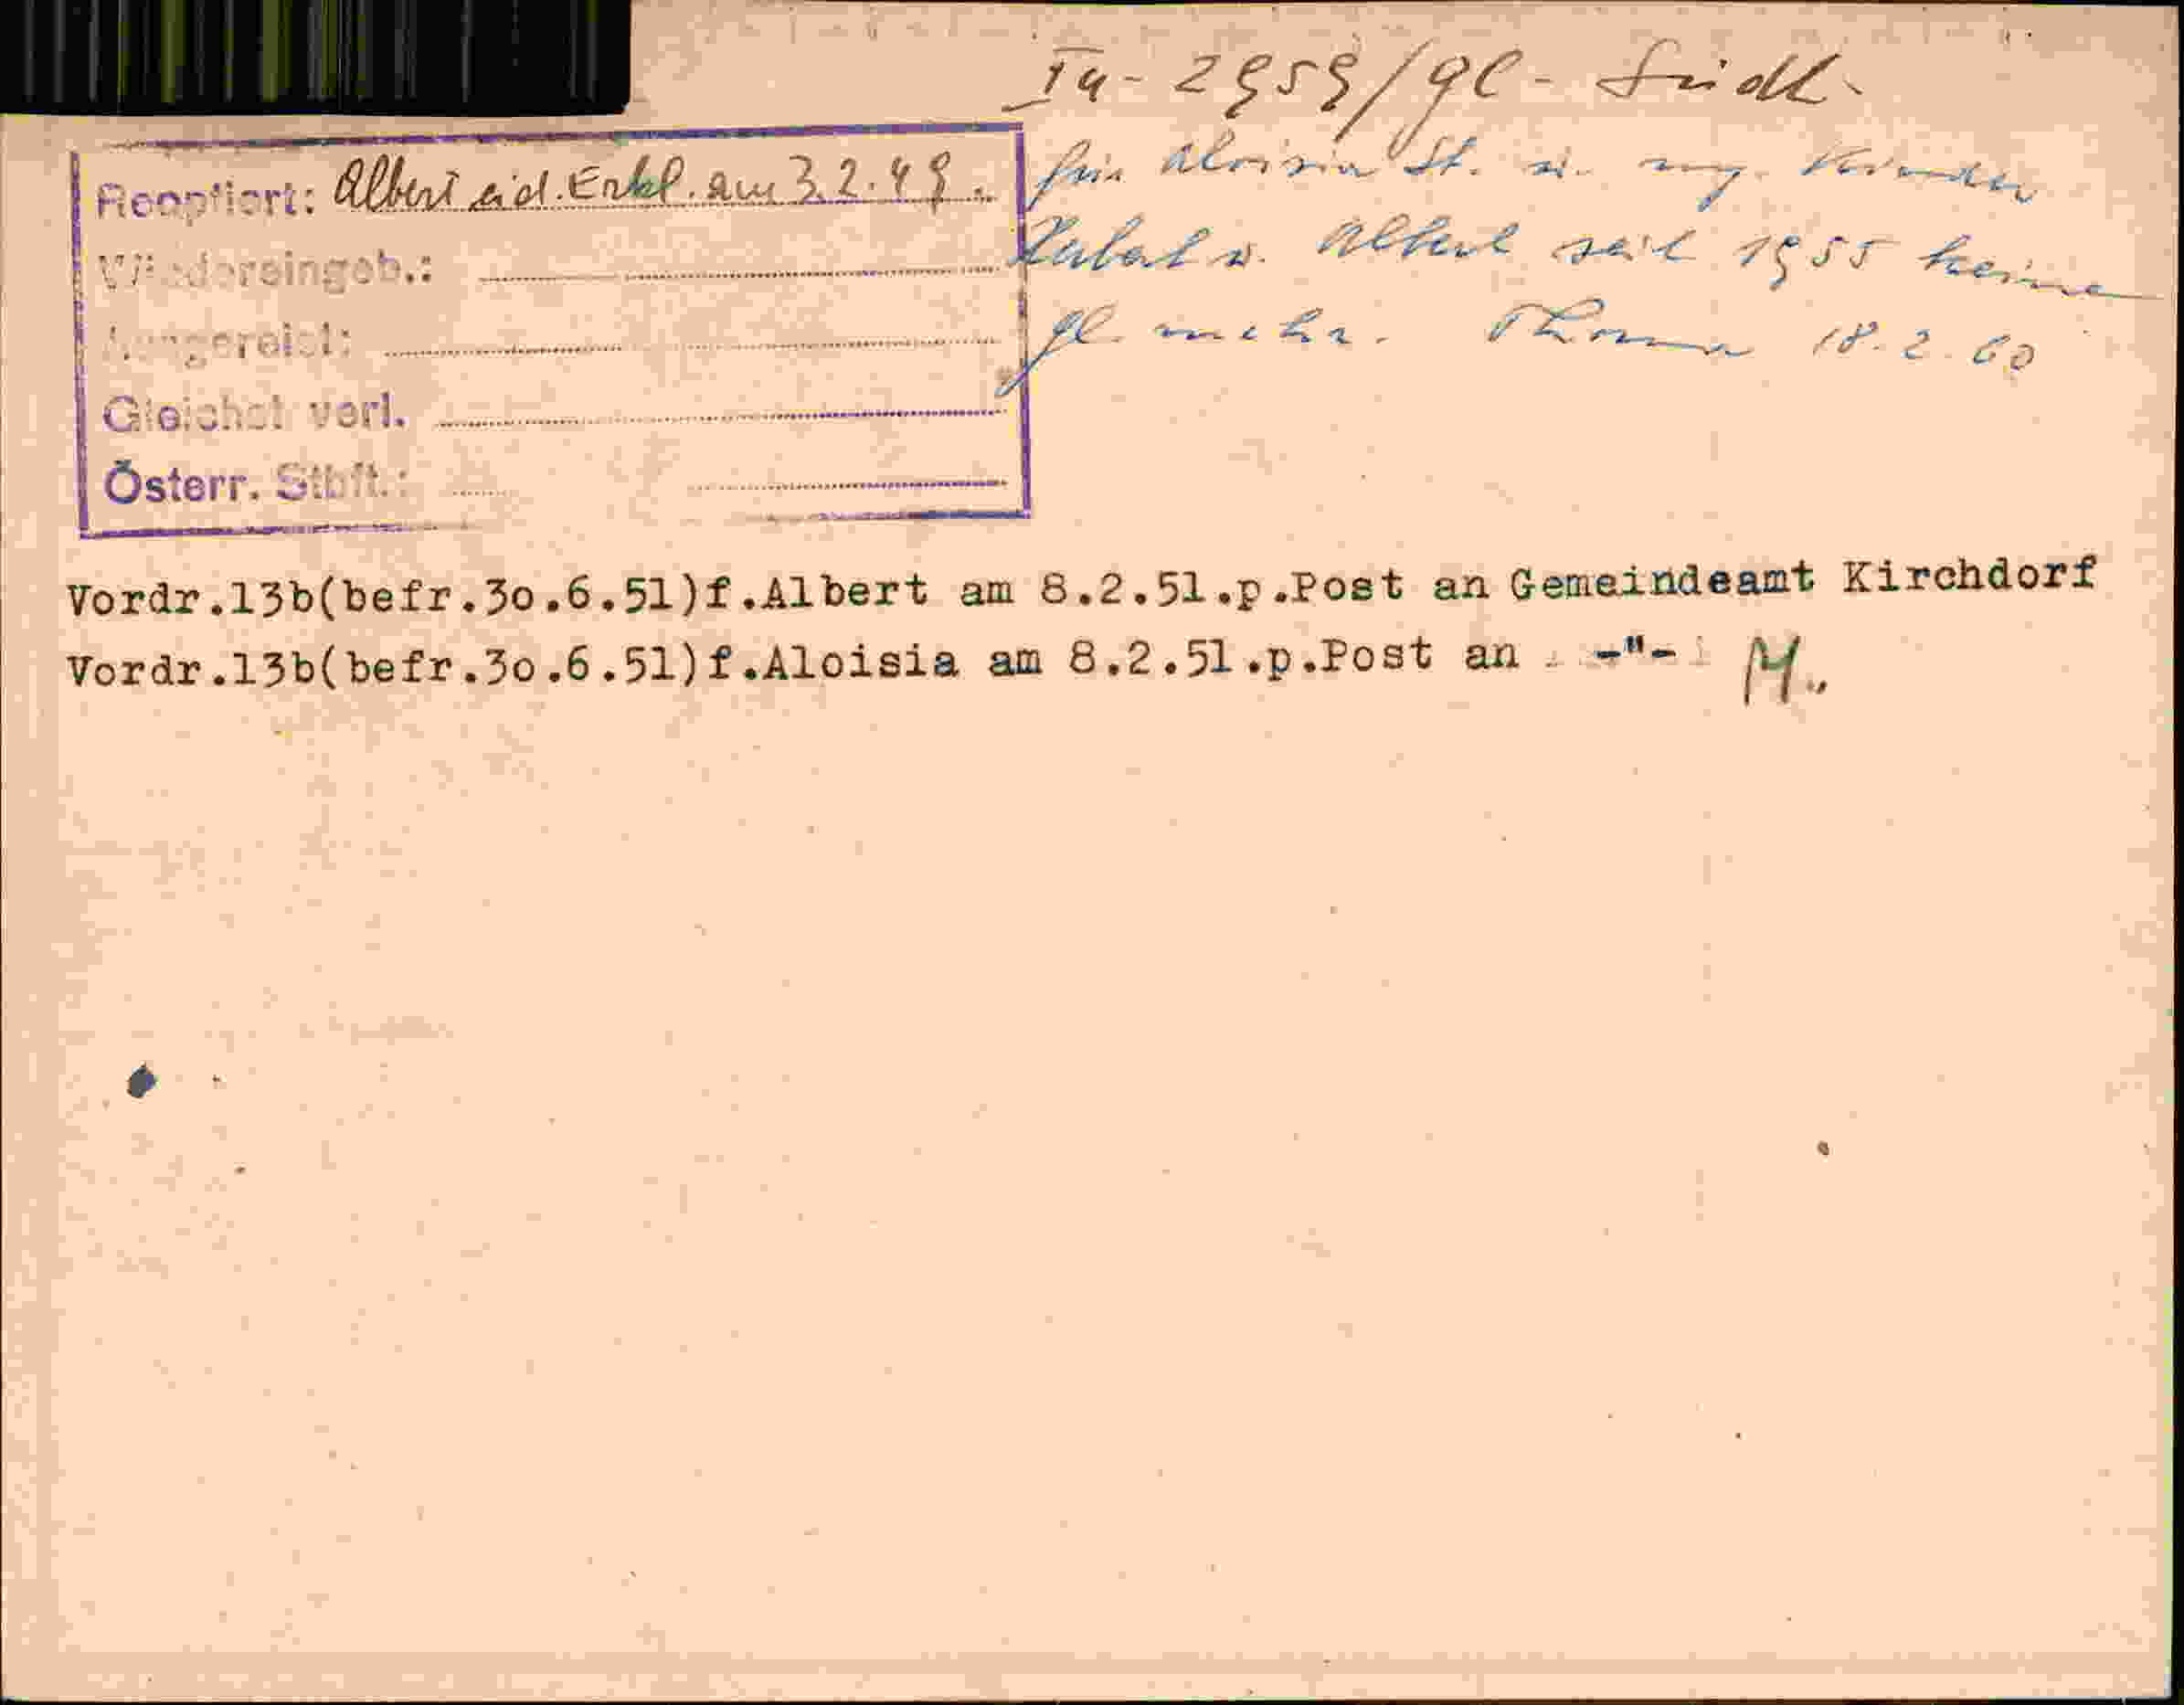 Ia - 2959/gl - Südl.
Reoptiert: Albert eid. Erkl. am 3.2.49.
für Aloisia St. u. mj. Kinder
Wiedereingeb.:
u. Albert seit 1955 keine
gl. mehr. Thoma 18.2.60
Gleichst verl.
Österr. Stbft.:
Vordr.13b(befr.3o.6.51)f.Albert am 8.2.51.p.Post an Gemeindeamt Kirchdorf
Vordr.13b(befr.3o.6.51)f.Aloisia am 8.2.51.p.Post an -"- M.